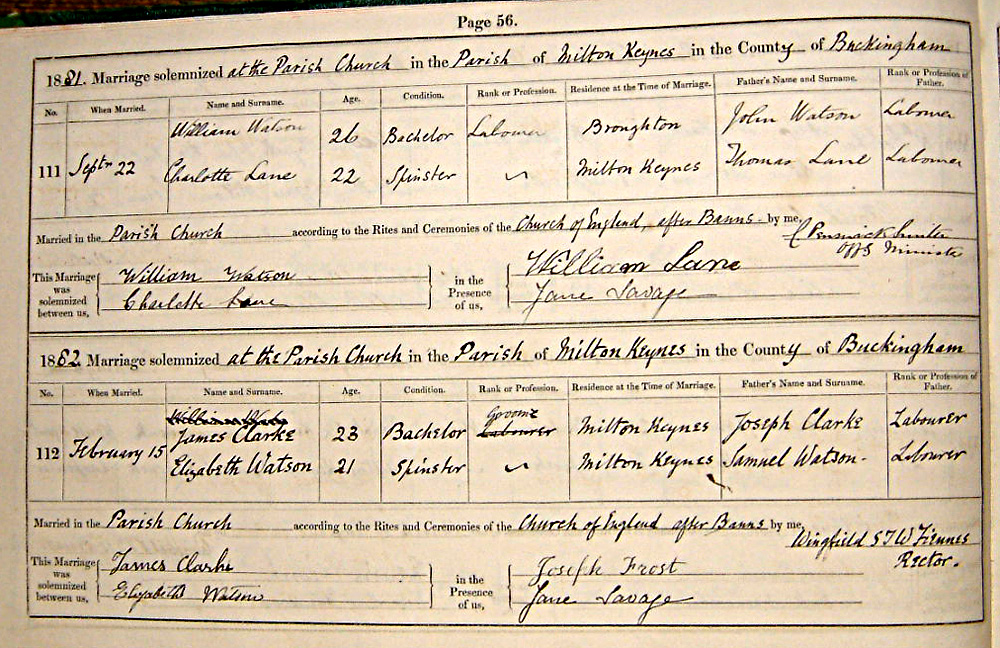 Page 56.
1881. Marriage solemnized at the Parish Church in the Parish of Milton Keynes in the County of Buckingham
No. When Married. Name and Surname. Age. Condition. Rank or Profession. Residence at the Time of Marriage. Father's Name and Surname. Rank or Profession of Father.
William Watson 26 Bachelor Labourer Broughton John Watson Labourer
111 Septr 22 Charlotte Lane 22 Spinster Milton Keynes Thomas Lane Labourer
Married in the Parish Church according to the Rites and Ceremonies of the Church of England, after Banns by me,
Offg Minister
This Marriage was solemnized between us,
William Watson
Charlotte Lane
in the Presence of us,
William Lane
Jane Savage
1882. Marriage solemnized at the Parish Church in the Parish of Milton Keynes in the County of Buckingham
No. When Married. Name and Surname. Age. Condition. Rank or Profession. Residence at the Time of Marriage. Father's Name and Surname. Rank or Profession of Father.
James Clarke 23 Bachelor Groom Labourer Milton Keynes Joseph Clarke Labourer
112 February 15 Elizabeth Watson 21 Spinster Milton Keynes Samuel Watson. Labourer
Married in the Parish Church according to the Rites and Ceremonies of the Church of England after Banns by me,
Wingfield S T W Fiennes
Rector.
This Marriage was solemnized between us,
James Clarke
Elizabeth Watson
in the Presence of us,
Joseph Frost
Jane Savage